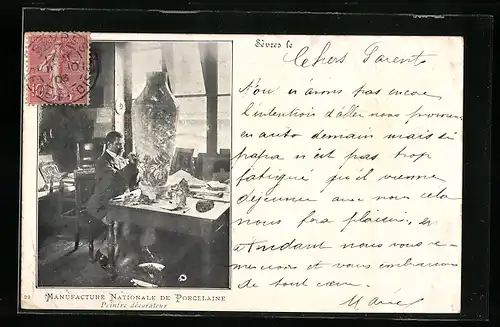 Sèvres le
Chers Parents
Nous n'avons pas encore
l'intention d'aller nous promener
en auto demain mais si
papa n'est pas trop
fatigué qu'il vienne
déjeuner avec nous cela
nous fera plaisir, en
attendant nous vous re-
mercions et vous embrassons
de tout cœur.
10
22
MANUFACTURE NATIONALE DE PORCELAINE
Peintre décorateur